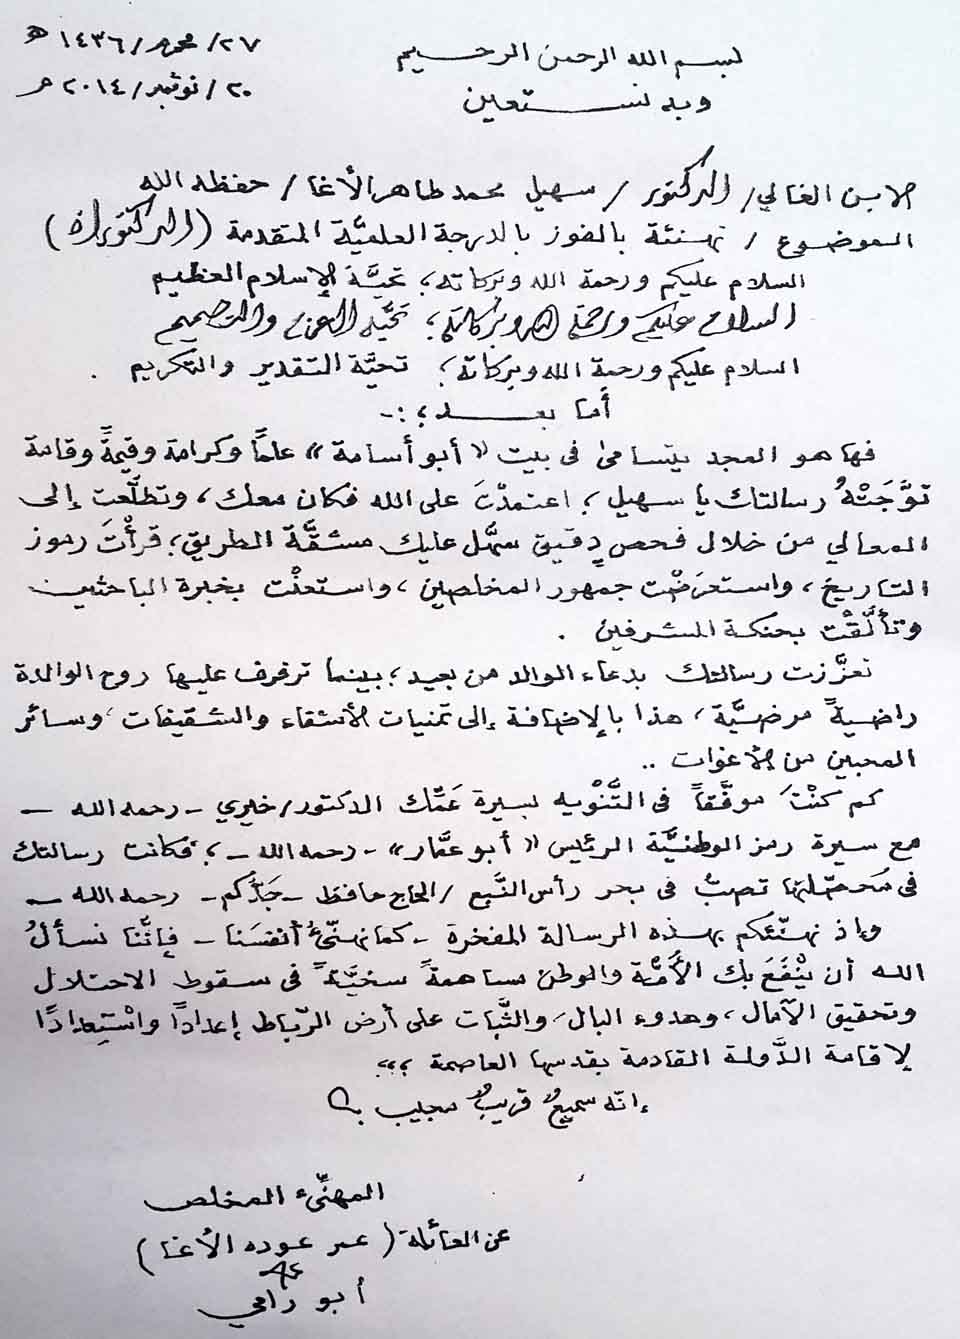 ٢٧/محرم/١٤٣٦هـ
٢٠/نوفمبر/٢٠١٤م
بسم الله الرحمن الرحيم
وبه نستعين
الابن الغالي/ الدكتور/ سهيل محمد طاهر الأغا/ حفظه الله
الموضوع/ تهنئة بالفوز بالدرجة العلميَّة المتقدمة (الدكتوراة)
السلام عليكم ورحمة الله وبركاته؛ تحيَّة الإسلام العظيم
السلام عليكم ورحمة الله وبركاته؛ تحيَّة العزم والتصميم
السلام عليكم ورحمة الله وبركاته؛ تحيَّة التقدير والتكريم .
أما بعد؛:-
فها هو المجد يتسامىٰ في بيت "أبو أسامة" علماً وكرامة وقيمةً وقامة
توَّجَتْهُ رسالتك يا سهيل؛ اعتمدْتَ على الله فكان معك، وتطلَّعت إلى
المعالي من خلال فحص دقيق سهَّل عليك مشقَّة الطريق؛ قرأْتَ رموز
التاريخ، واستعرَضْت جمهور المخلصين، واستعنْت بخبرة الباحثين
وتألَّقْت بحنكة المشرفين .
تعزَّزت رسالتك بدعاء الوالد من بعيد؛ بينما ترفرف عليها روح الوالدة
راضيةً مرضيَّة، هذا بالإضافة إلى تمنيات الأشقاء والشقيقات، وسائر
المحبين من الأغوات ..
كم كنْتَ موفَّقاً في التَّنْويه لسيرة عَمِّك الدكتور/خيري - رحمه الله -
مع سيرة رمز الوطنيَّة الرئيس "أبو عمَّار" - رحمه الله -؛ فكانت رسالتك
في مُحصِّلتها تصبُّ في بحر رأس النَّبع/الحاج حافظ - جَدُّكم - رحمه الله -
وإذ نهنِّئكم بهذه الرسالة المفخرة - كما نهنِّئُ أنفسَنا - فإنَّنا نسألُ
الله أن ينْفَعَ بك الأُمَّة والوطن مساهمةً سخيَّةً في سقوط الاحتلال
وتحقيق الآمال، وهدوء البال، والثَّبات على أرض الرِّباط إعداداً واسْتِعدادًا
لإقامة الدَّولة القادمة بقدسها العاصمة ؛؛؛
إنّه سميعٌ قريبٌ مجيب
المهنِّئ المخلص
عن العائلة (عمر عوده الأغا)
أبو رامي